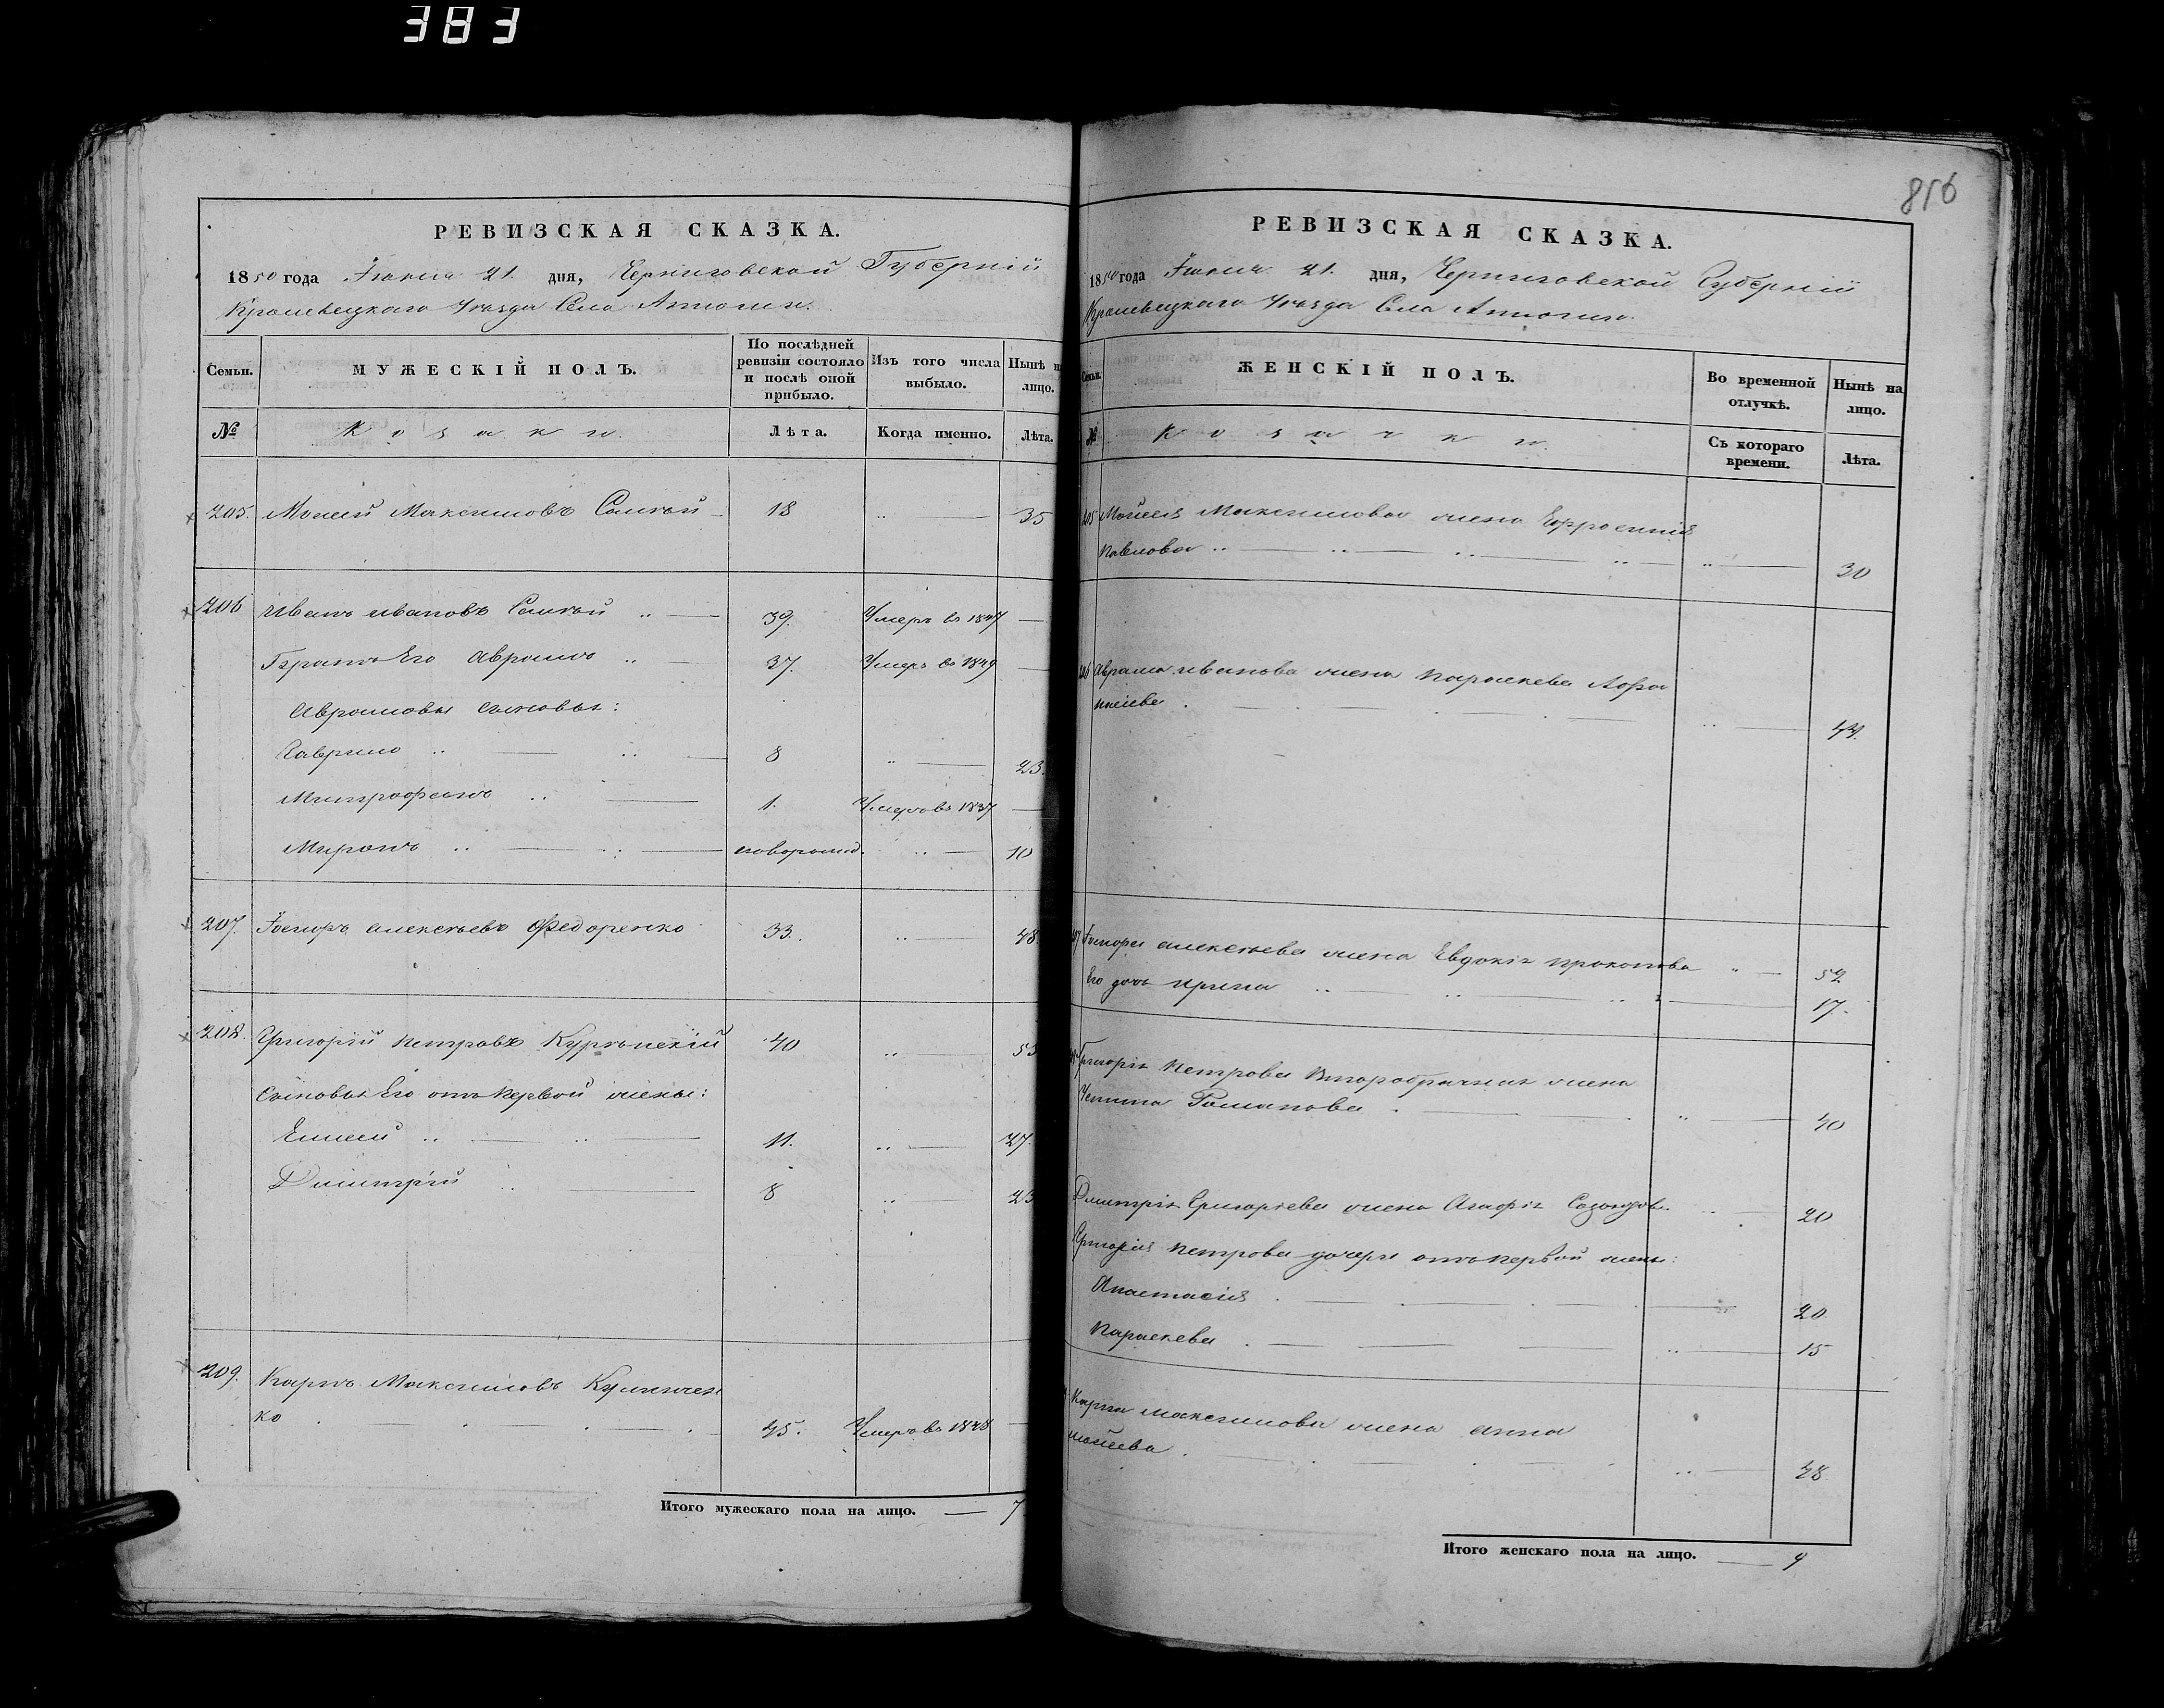 383
816
РЕВИЗСКАЯ СКАЗКА.
1850 года Іюня 21. дня, Черниговской Губерніи
Кролевецкаго Уѣзда Села
Семьи. МУЖЕСКІЙ ПОЛЪ. По послѣдней ревизіи состояло и послѣ оной прибыло. Изъ того числа выбыло. Нынѣ на лицо.
№ Козаки. Лѣта. Когда именно. Лѣта.
205. Моисей Максимовъ 18 35
206 Иванъ Ивановъ 39. Умеръ въ 1847
Братъ Его Аврамъ 37. Умеръ въ 1849
Аврамовы сыновья:
Гаврило 8 23.
Митрофанъ 1. Умеръ въ 1837
Миронъ новорожд. 10
207. Алексѣевъ Федоренко 33. 48.
208. Григорій Петровъ 40 53
Сыновья Его отъ первой жены:
Елисей 11. 27.
Димитрій 8 23
209. Карпъ Максимовъ
ко 45. Умеръ въ 1848
Итого мужескаго пола на лицо. 7
РЕВИЗСКАЯ СКАЗКА.
1850 года Іюня 21. дня, Черниговской Губерніи
Кролевецкаго Уѣзда Села
Семьи. ЖЕНСКІЙ ПОЛЪ. Во временной отлучкѣ. Нынѣ на лицо.
№ Козачки. Съ котораго времени. Лѣта.
205 Моисея Максимова жена Ефросинія
Павлова 30
206 Аврама Иванова жена Параскева
44.
Алексѣева жена Евдокія Прокопова 52
Его дочь Ирина 17.
Григорія Петрова второбрачная жена
Устина Романова 40
Дмитрія Григорьева жена Агафія 20
Григорія Петрова дочери отъ первой жены:
Анастасія 20
Параскева 15
Карпа Максимова жена Анна
Моисеева 48.
Итого женскаго пола на лицо. 9